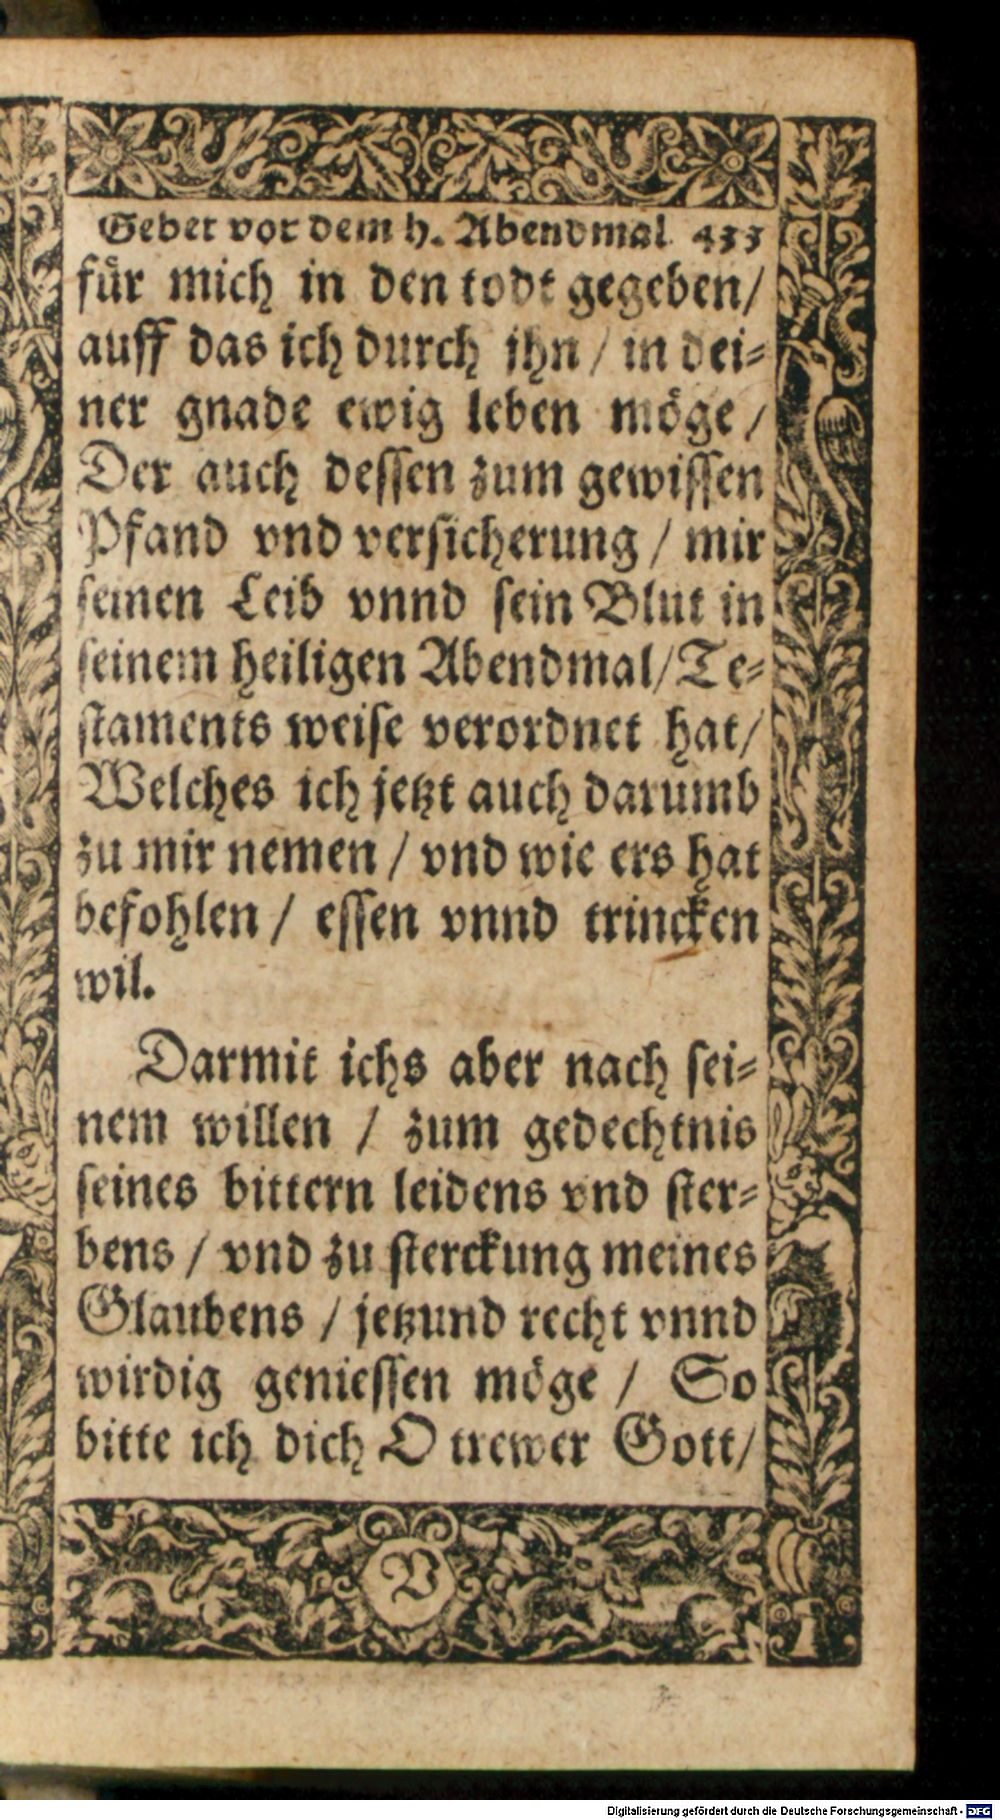 Gebet vor dem h. Abendmal. 433
für mich in den todt gegeben/
auff das ich durch jhn / in dei⸗
ner gnade ewig leben möge /
Der auch dessen zum gewissen
Pfand vnd versicherung / mir
seinen Leib vnnd sein Blut in
seinem heiligen Abendmal/ Te⸗
staments weise verordnet hat/
Welches ich jetzt auch darumb
zu mir nemen / vnd wie ers hat
befohlen / essen vnnd trincken
wil.
Darmit ichs aber nach sei⸗
nem willen / zum gedechtnis
seines bittern leidens vnd ster⸗
bens / vnd zu sterckung meines
Glaubens / jetzund recht vnnd
wirdig geniessen möge / So
bitte ich dich O trewer Gott/
V
Digitalisierung gefördert durch die Deutsche Forschungsgemeinschaft - DFG